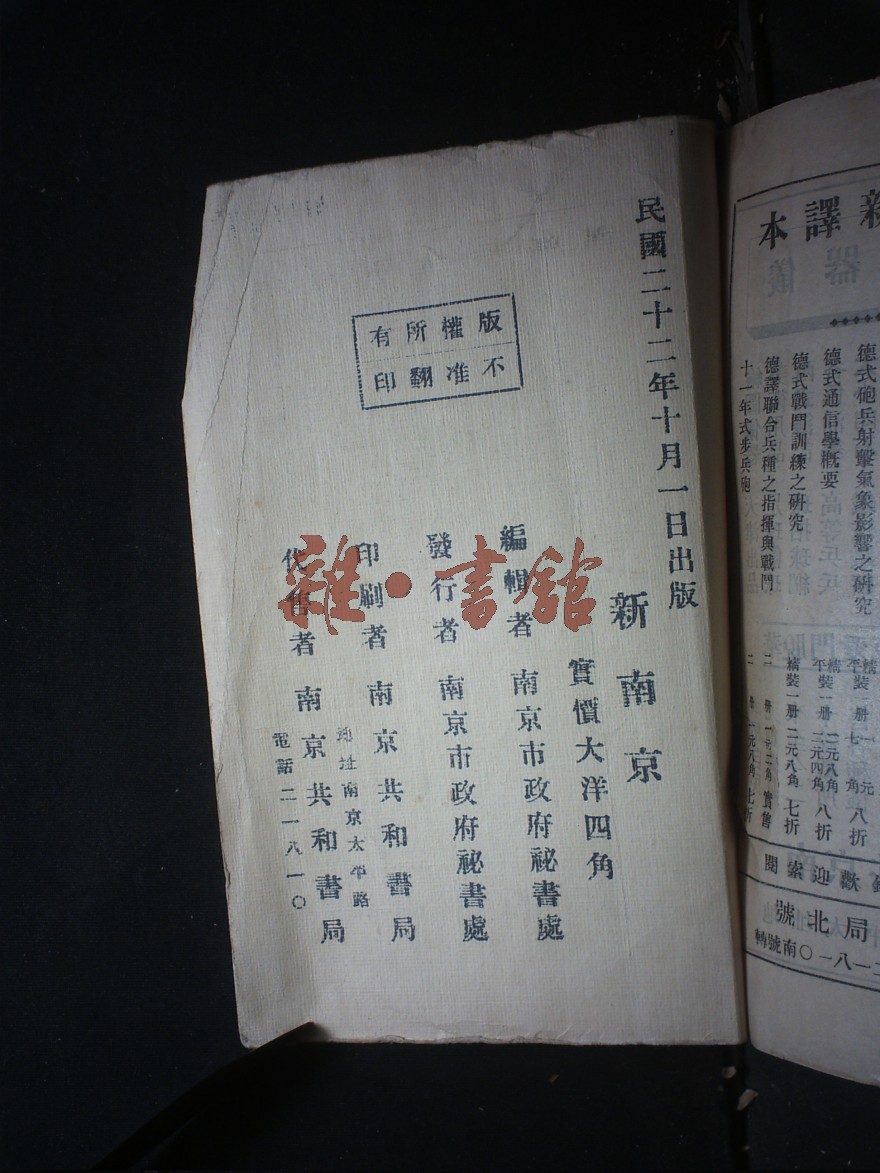 民國二十二年十月一日出版
新南京
實價大洋四角
編輯者 南京市政府祕書處
發行者 南京市政府祕書處
印刷者 南京共和書局
地址南京太平路
代售者 南京共和書局
電話二一八一〇
版權所有
不准翻印
雜·書館
新譯本
德式砲兵射擊氣象影響之研究
德式通信學概要
德式戰鬥訓練之研究
德譯聯合兵種之指揮與戰鬥
十一年式步兵砲
精裝一册二元八角 七折
二册 一元二角 實售
歡迎索閱
局北號
二一八一〇南號轉